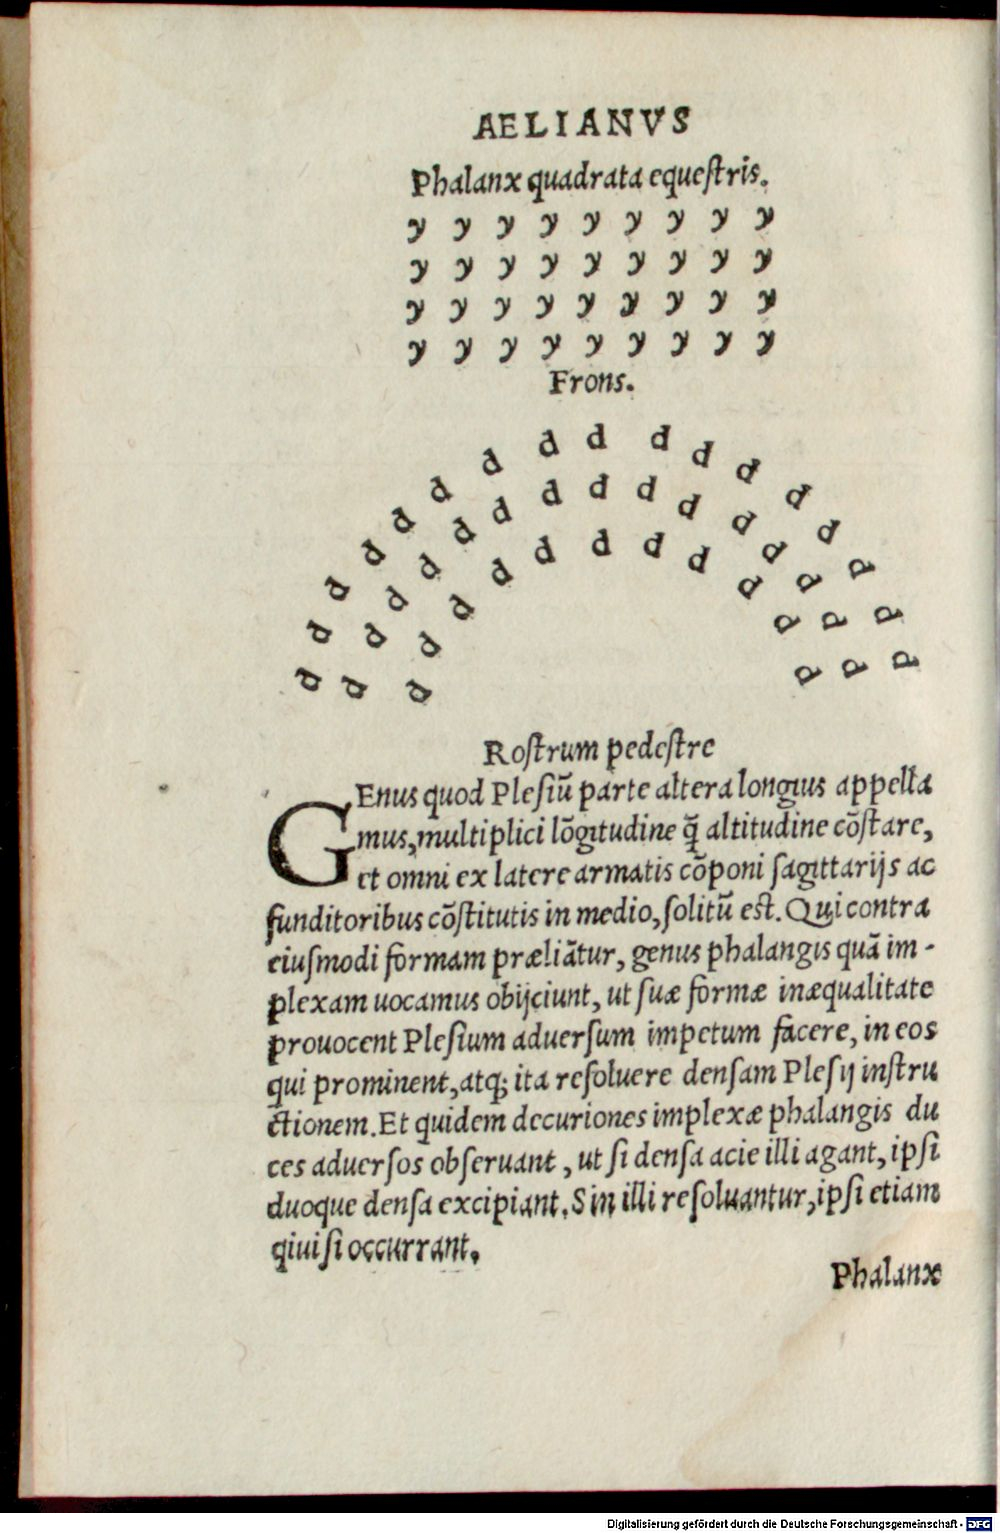 AELIANVS
Phalanx quadrata equeſtris.
y y y y y y y y y
y y y y y y y y y
y y y y y y y y y
y y y y y y y y y
Frons.
d d d d d d d d d d d d d d d d d d
d d d d d d d d d d d d d d d d
d d d d d d d d d d d d
Roſtrum pedeſtre
GEnus quod Pleſiū parte altera longius appella
mus, multiplici lōgitudine q̄ altitudine cōſtare,
et omni ex latere armatis cōponi ſagittarijs ac
funditoribus cōſtitutis in medio, ſolitū eſt. Qui contra
eiuſmodi formam præliātur, genus phalangis quā im-
plexam uocamus obijciunt, ut ſuæ formæ inæqualitate
prouocent Pleſium aduerſum impetum facere, in eos
qui prominent, atq; ita reſoluere denſam Pleſij inſtru
ctionem. Et quidem decuriones implexæ phalangis du
ces aduerſos obſeruant, ut ſi denſa acie illi agant, ipſi
duoque denſa excipiant. Sin illi reſoluantur, ipſi etiam
qiuiſi occurrant.
Phalanx
Digitalisierung gefördert durch die Deutsche Forschungsgemeinschaft - DFG